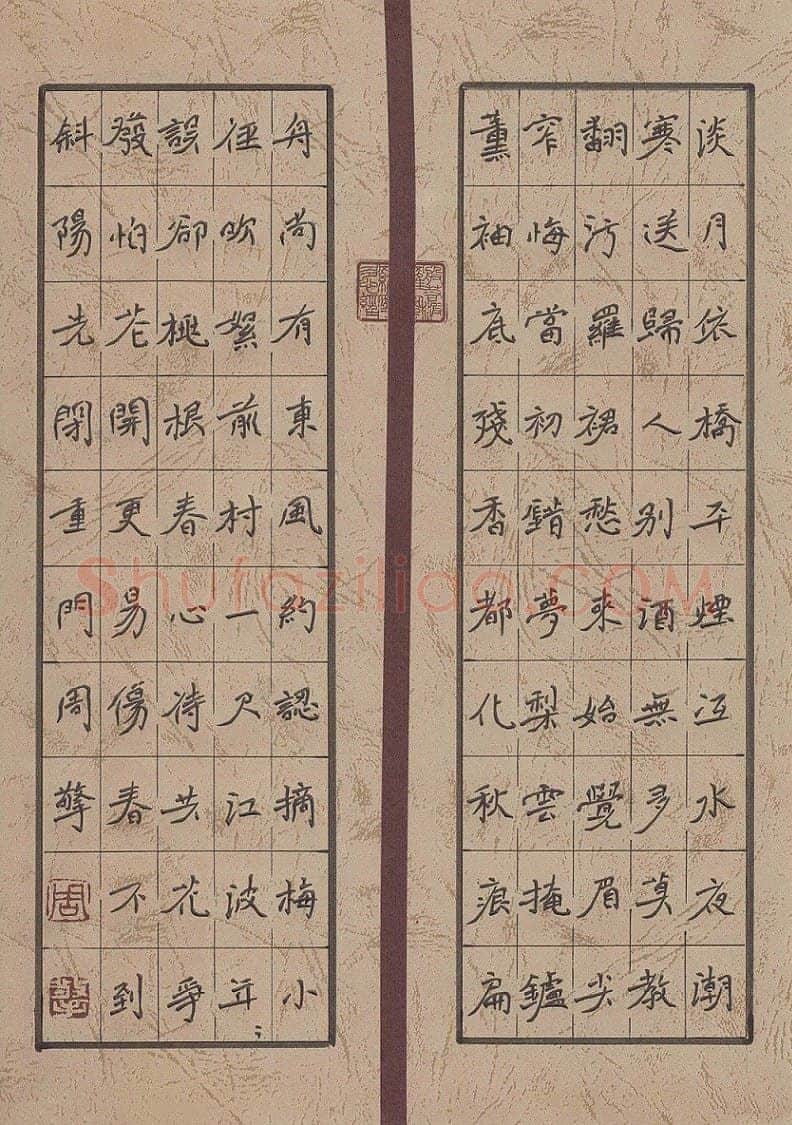 淡月依橋平煙冱水夜潮
寒送歸人别酒無多莫教
翻污羅裙愁來始覺眉尖
窄悔當初錯夢梨雲掩鑪
薰袖底殘香都化秋痕扁
舟尚有東風約認摘梅小
徑吹絮前村一尺江波年〻
誤卻桃根春心待共花爭
發怕花開更易傷春不到
斜陽先閉重門周擎
周
擎
Shufaziliao.COM